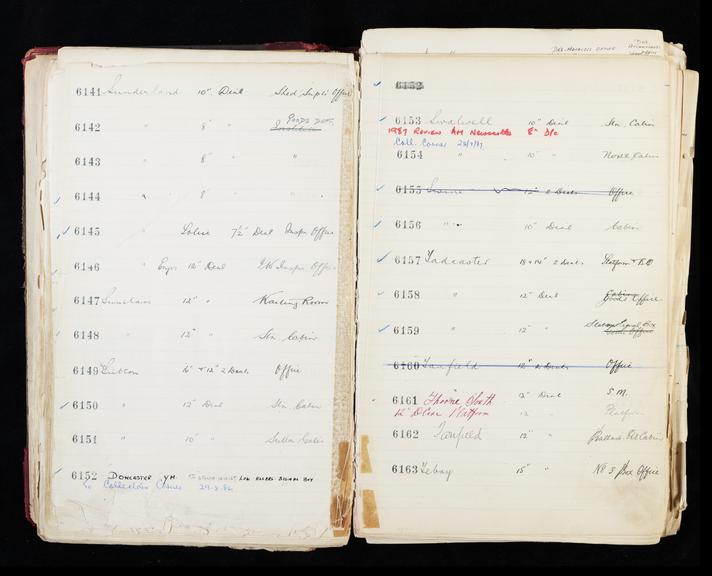 6141 Sunderland 10" Dial Shed Supts Office
Goods Dept.
6142 " 8" "
6143 " 8" " "
6144 " 8" " "
6145 " Police 7½" Dial Inspr Office
6146 " Engrs 12" Dial P.W. Inspr Office
6147 12" " Waiting Room
6148 " 12" " Stn Cabin
6149 " + 12" 2 Dials Office
6150 " 12" Dial Stn Cabin
6151 " 10" " Cabin
6152 DONCASTER Y.M. SIGNAL BOX
To Collectors Corner 29.3.82
6152
6153 Swalwell 10" Dial Stn. Cabin
1987 REVIEW AM Newcastle 8" D/c
Coll. Corner 23/7/87
6154 " 10" " North Cabin
6155 12" 2 Dials Office
6156 " " 10" Dial Cabin
6157 Tadcaster 18 + 14" 2 Dials Platform + B.O
Cabin
6158 " 12" Dial Goods Office
6159 " 12" " Signal Box
6160 Tanfield 12" 2 Dials Office
6161 Thorne North 12" Dial S.M.
12" Dial Platform 12 " Platform
6162 Tanfield 12" " Cabin
6163 Tebay 15" " No 3 Box Office